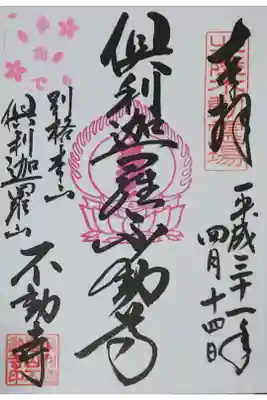 奉拝
平成三十一年
四月十四日
倶利迦羅不動尊
別格本山
倶利迦羅山
不動寺